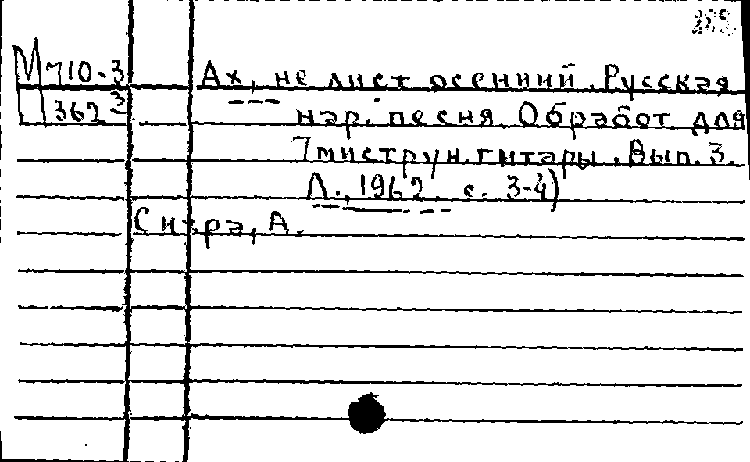 М 710-3 Ах, не лист осенний. Русская
П 362 3 нар. песня. Обработ. для
7миструн. гитары. Вып. 3.
Л., 1962. с. 3-4)
Сихра, А.